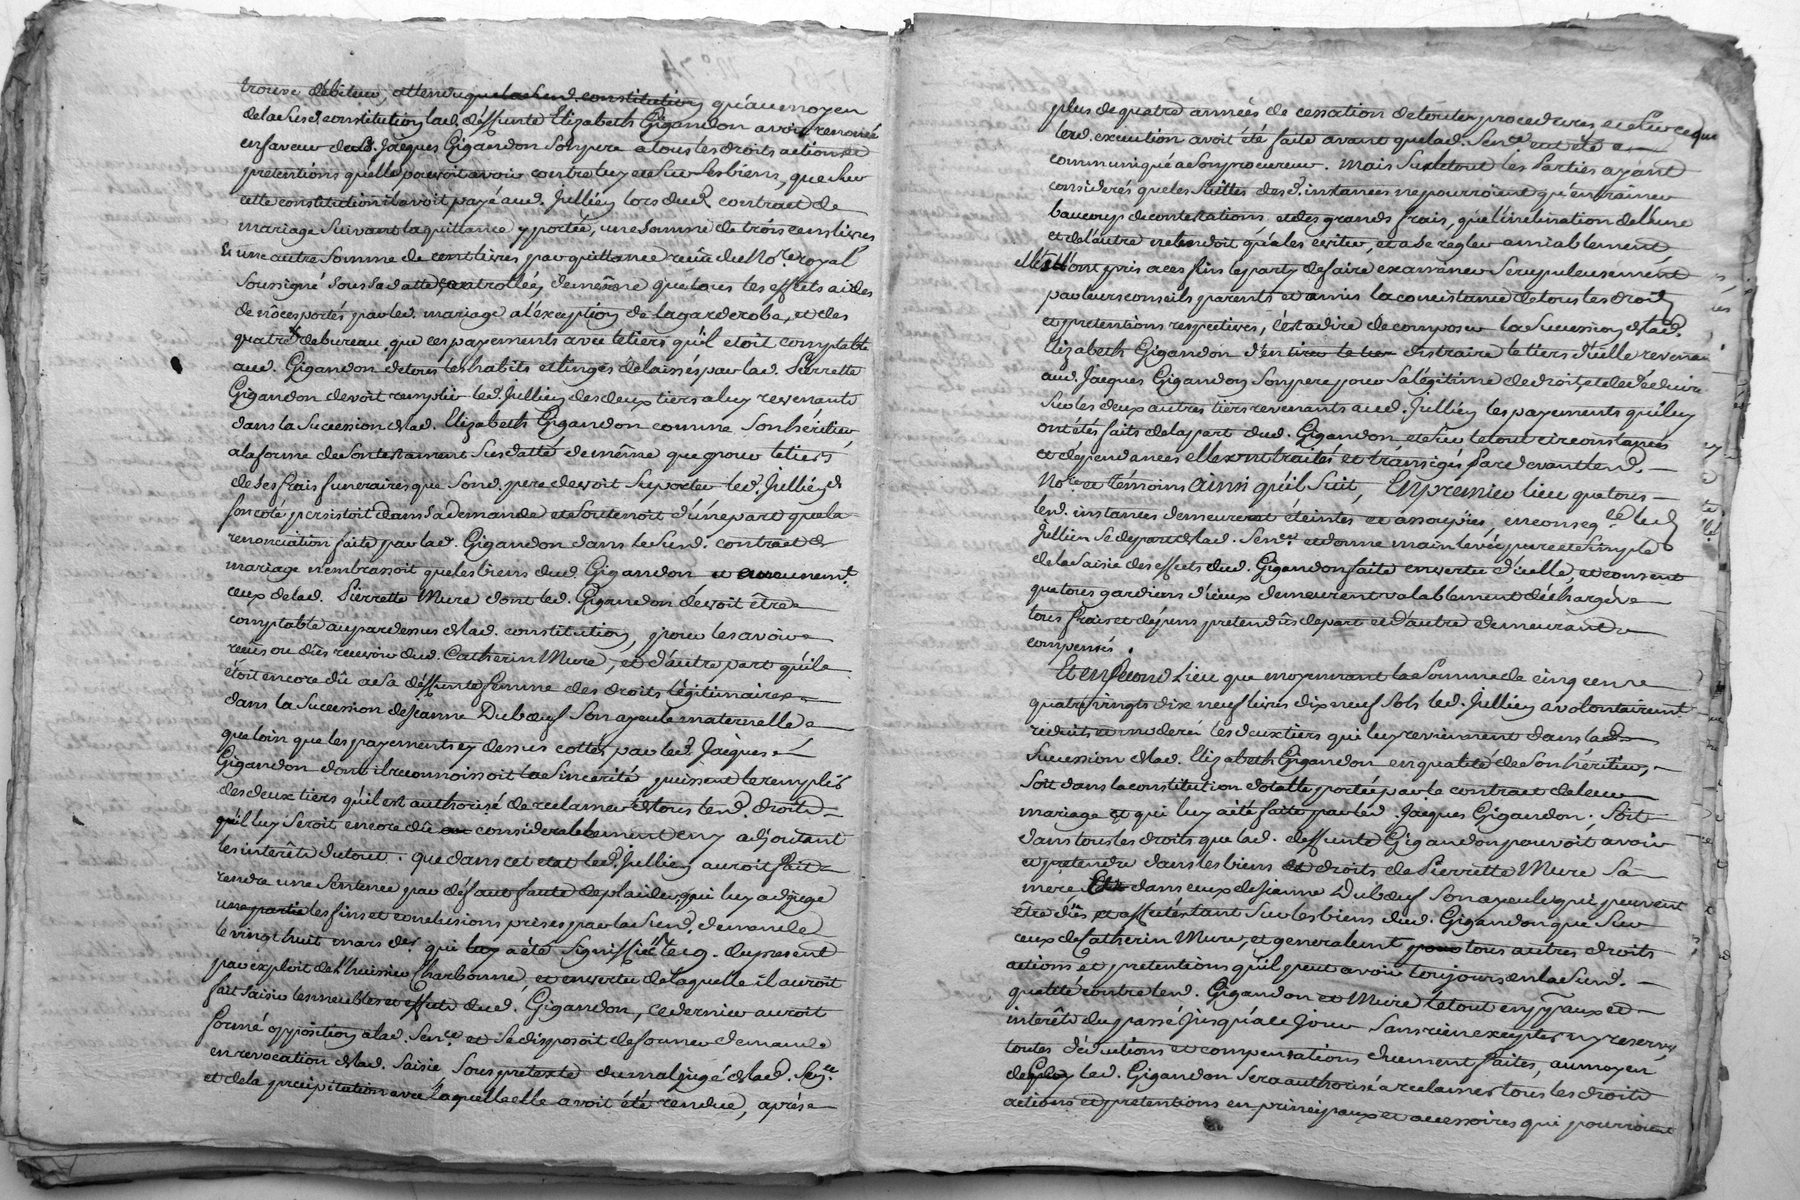 trouve débiteur, attendu que la susd. constitution qu'au moyen
de la susd. constitution lad. déffunte Elizabeth Gigandon avoit renoncé
en faveur dud. Jacques Gigandon son pere a tous les droits actions et
prétentions quelle pouvoit avoir contre luy et sur ses biens, que sur
cette constitution il avoit payé aud. Jullien lors dud. contract de
mariage suivant la quittance y portée, une somme de trois cens livres
& une autre somme de cent livres par quittance reçue du No.re royal
soussigné sous sa datte controllée, de même que tous les effets aides
de nôces portés par led. mariage a l'exception de la garderobe, et des
quatre de bureau que ces payements avec le tiers qu'il etoit comptable
aud. Gigandon de tous les habits et linges délaissés par lad. Pierrette
Gigandon devoit remplir led. Jullien des deux tiers a luy revenants
dans la succession de lad. Elizabeth Gigandon comme son héritier
a la forme de son testament susdatté de même que pour le tiers
de ses frais funeraires que sond. pere devoit suporter led. Jullien de
son coté persistoit dans sa demande et soutenoit d'une part que la
renonciation faite par lad. Gigandon dans le susd. contract de
mariage n'embrassoit que les biens dud. Gigandon et aucunem.t
ceux de lad. Pierrette Mure dont led. Gigandon devoit être
comptable au pardessus de lad. constitution, pour les avoir
reçus ou dûs recevoir dud. Catherin Mure, et d'autre part qu'il
étoit encore dû a sa déffunte femme des droits légitimaires
dans la succession de Jeanne Dubœuf son ayeule maternelle
que loin que les payements cy dessus cottés par led. Jacques
Gigandon dont il reconnoissoit la sincerité puissent le remplir
des deux tiers qu'il est authorisé de reclamer de tous lesd. droits
qu'il luy seroit encore dû considerablement en y adjoutant
les intérêts du tout. que dans cet etat led. Jullien auroit fait
rendre une sentence par défaut faute de plaider, qui luy adjuge
une partie les fins et conclusions prises par la susd. demande
le vingt huit mars der. qui luy a été signiffiée le 19. du present
par exploit de l'huissier Charbonné, et en vertu de laquelle il auroit
fait saisir les meubles et effets dud. Gigandon, ce dernier auroit
formé opposition a lad. sen.ce et se disposoit de former demande
en revocation de lad. saisie sous pretexte du mal jugé de lad. sen.ce
et de la precipitation avec laquelle elle avoit été rendue, après
plus de quatre années de cessation de toutes procedures, et sur ce que
led. execution avoit été faite avant que lad. sen.ce eut été
communiqué a son procureur. Mais sur le tout les parties ayant
considerés que les suittes desd. instances ne pourroient qu'entrainer
baucoup de contestations et des grands frais, que l'inclination de l'une
et de l'autre ne tendoit qu'a les eviter, et a se regler amiablement,
elles ont pris a ces fins le party de faire examiner scrupuleusement
par leurs conseils parents et amis la concistance de tous les droits
et pretentions respectives, c'est a dire de composer la succession de lad.
Elizabeth Gigandon d'en tirer le tier distraire le tiers d'icelle revenant
aud. Jacques Gigandon son pere pour sa légitime de droit, et de déduire
sur les deux autres tiers revenants aud. Jullien les payements qu'il luy
ont étés faits de la part dud. Gigandon et sur le tout circonstances
et dépendances elles ont traités et transigés pardevant led.
No.re et témoins ainsi qu'il suit, En premier lieu que tous
lesd. instances demeureront éteintes et assoupies, en conseq.ce led.
Jullien se depart de lad. sen.ce et donne main levée pure et simple
de la saisie des effets dud. Gigandon faite en vertu d'icelle, et consent
que tous gardiens d'iceux demeurent valablement déchargés
tous frais et dépens pretendus de part et d'autre demeurant
compensés.
Et en second lieu que moyennant la somme de cinq cens
quatre vingts dix neuf livres dix neuf sols led. Jullien a volontairemt
réduits et moderé les deux tiers qui luy reviennent dans lad.
succession de lad. Elizabeth Gigandon en qualité de son héritier,
soit dans la constitution dotalle portée par le contract de leur
mariage et qui luy a été faite par led. Jacques Gigandon. soit
dans tous les droits que lad. deffunte Gigandon pouvoit avoir
et pretendre dans les biens et droits de Pierrette Mure sa
mere dans ceux de Jeanne Dubœuf son ayeule qui peuvent
être dûs et affectés tant sur les biens dud. Gigandon que sur
ceux de Catherin Mure, et generalemt pour tous autres droits
actions et pretentions qu'il peut avoir toujours en la susd.
qualité contre lesd. Gigandon et Mure le tout en pp.aux et
intérêts du passé jusqu'a ce jour sans rien excepter ny reserver
toutes déductions et compensations duement faites, au moyen
de quoy led. Gigandon sera authorisé a reclamer tous les droits
actions et pretentions en principaux et accessoires qui pourroient